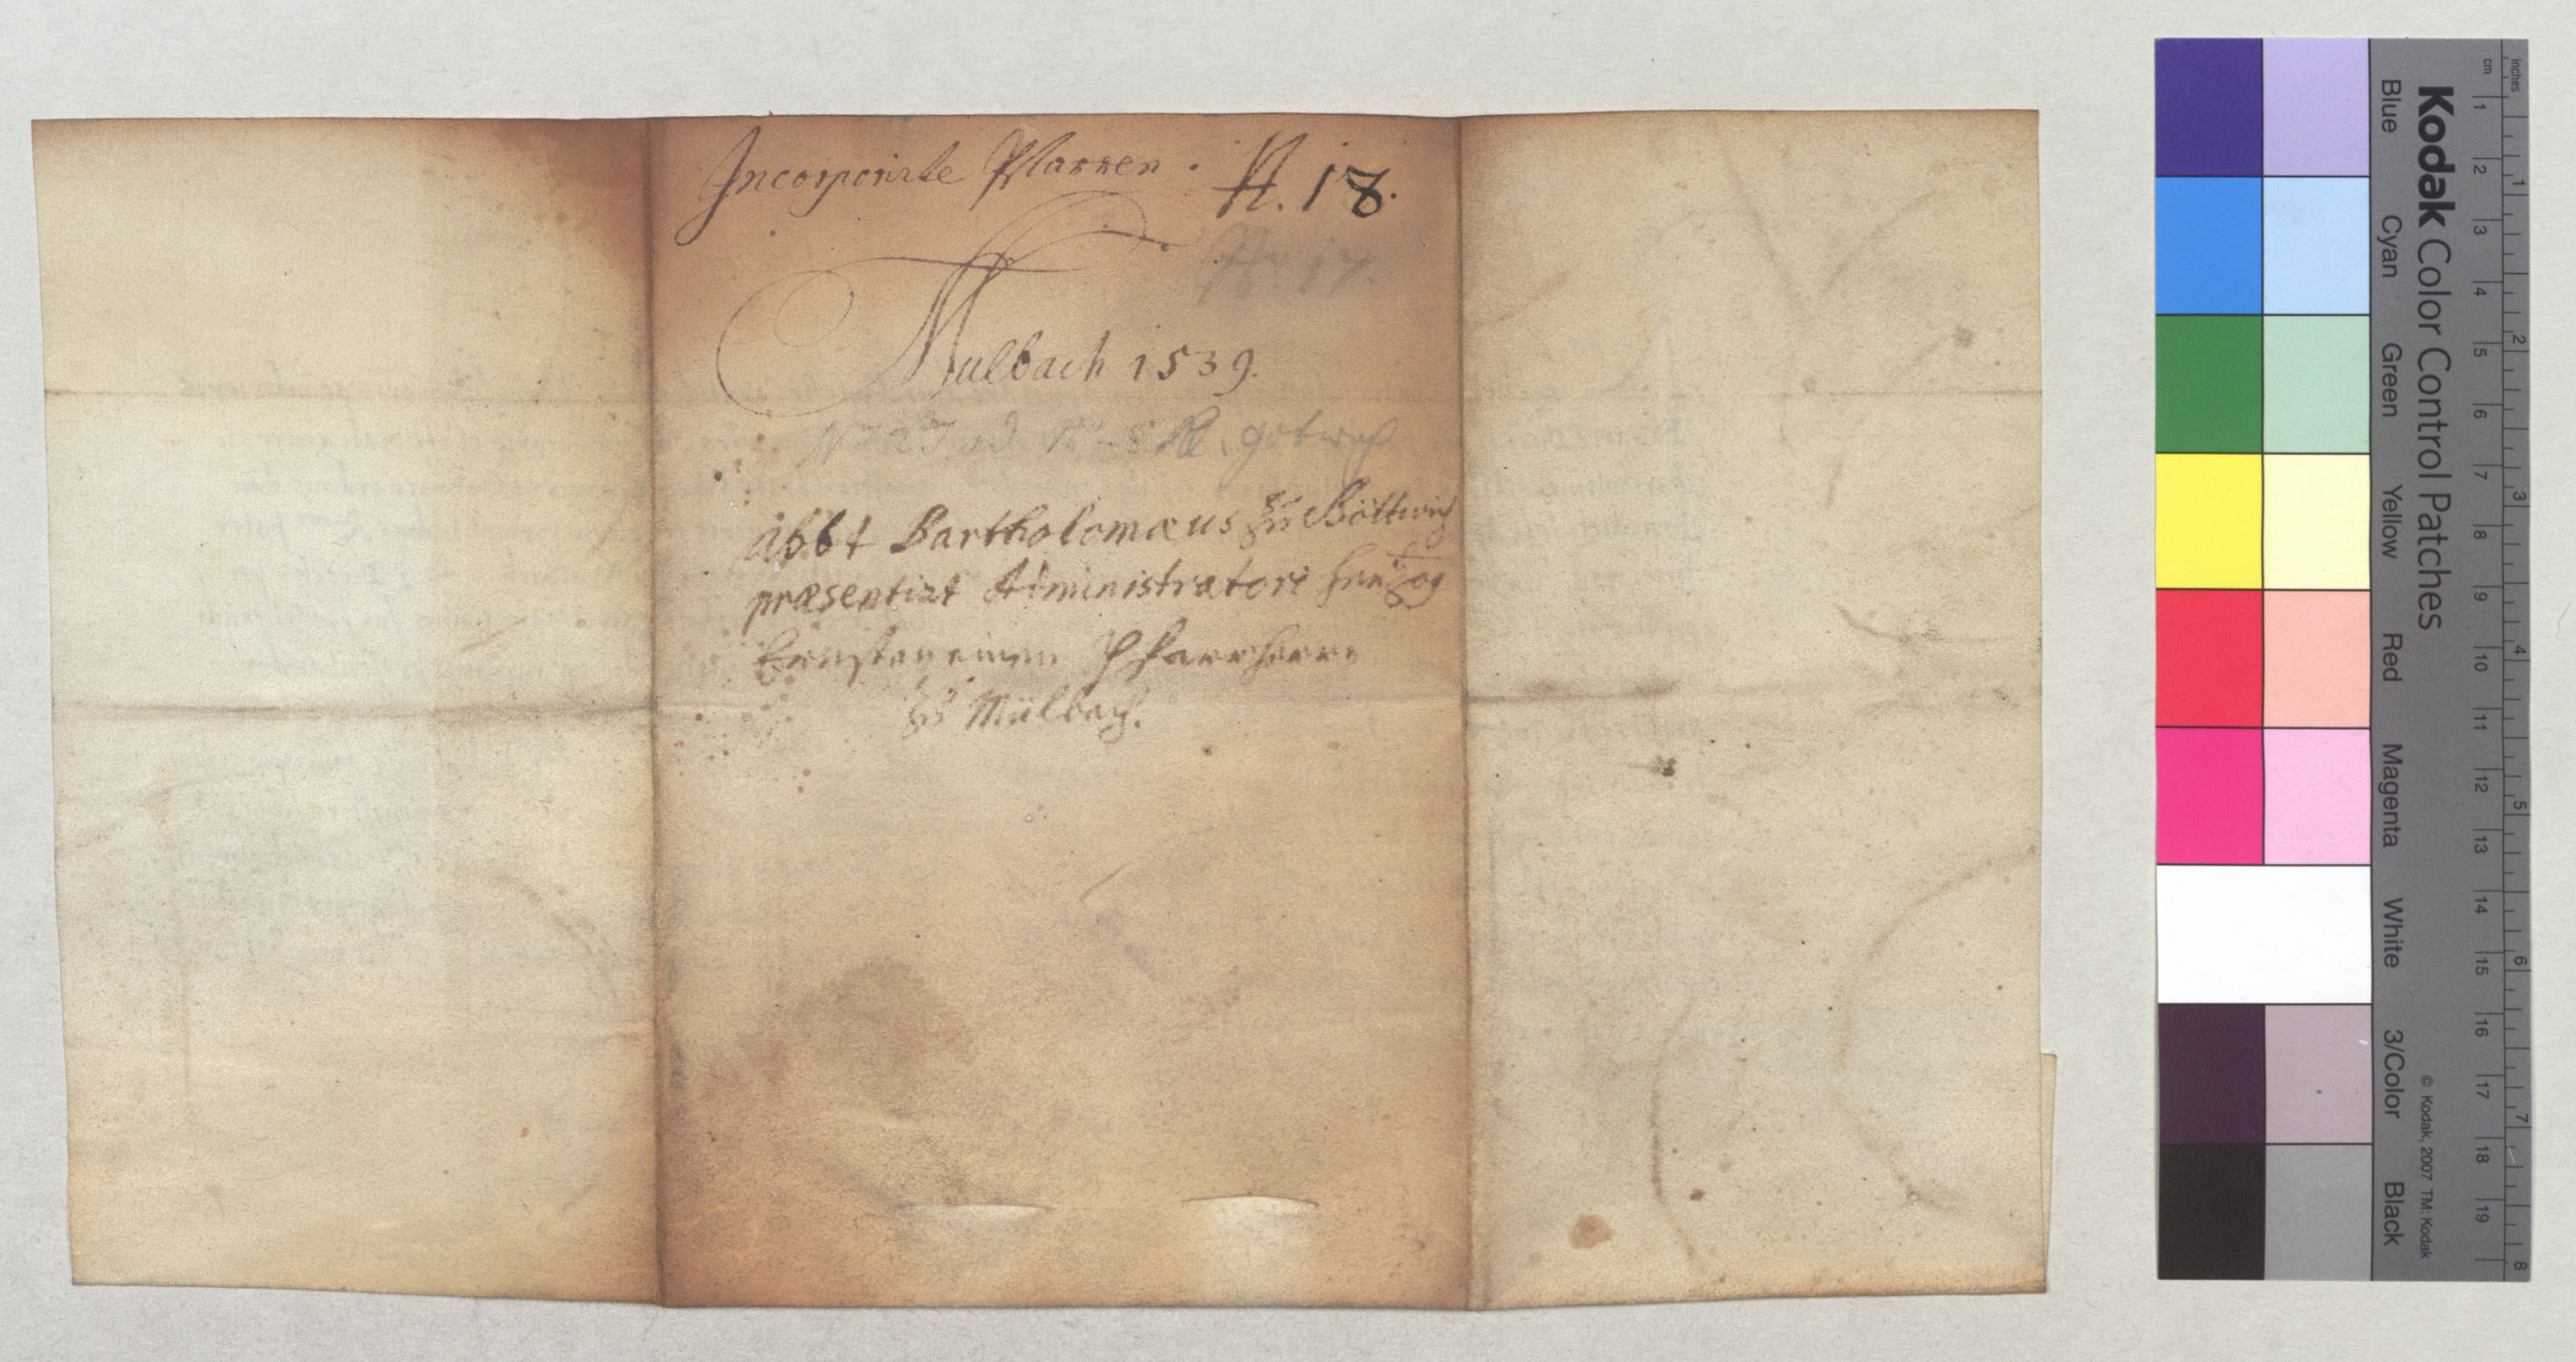 Incorporirte Pfarren. N. 18.
Mulbach 1539.
Abbt Bartholomæus zu Göttweig
præsentirt Administratori Herzog
Ernsten einen Pfarrherrn
zu Mülbach.
Kodak Color Control Patches
Blue Cyan Green Yellow Red Magenta White 3/Color Black
© Kodak, 2007 TM: Kodak
cm 1 2 3 4 5 6 7 8 9 10 11 12 13 14 15 16 17 18 19
inches 1 2 3 4 5 6 7 8